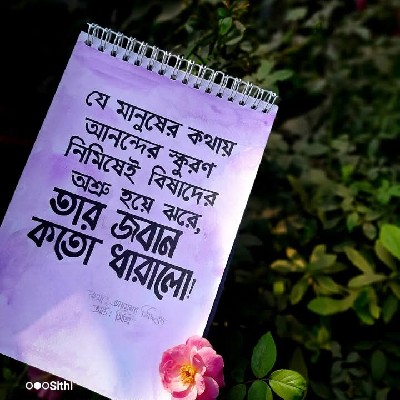 যে মানুষের কথায়
আনন্দের স্ফুরণ
নিমিষেই বিষাদের
অশ্রু হয়ে ঝরে,
তার জবান
কতো ধারালো!
Sithi